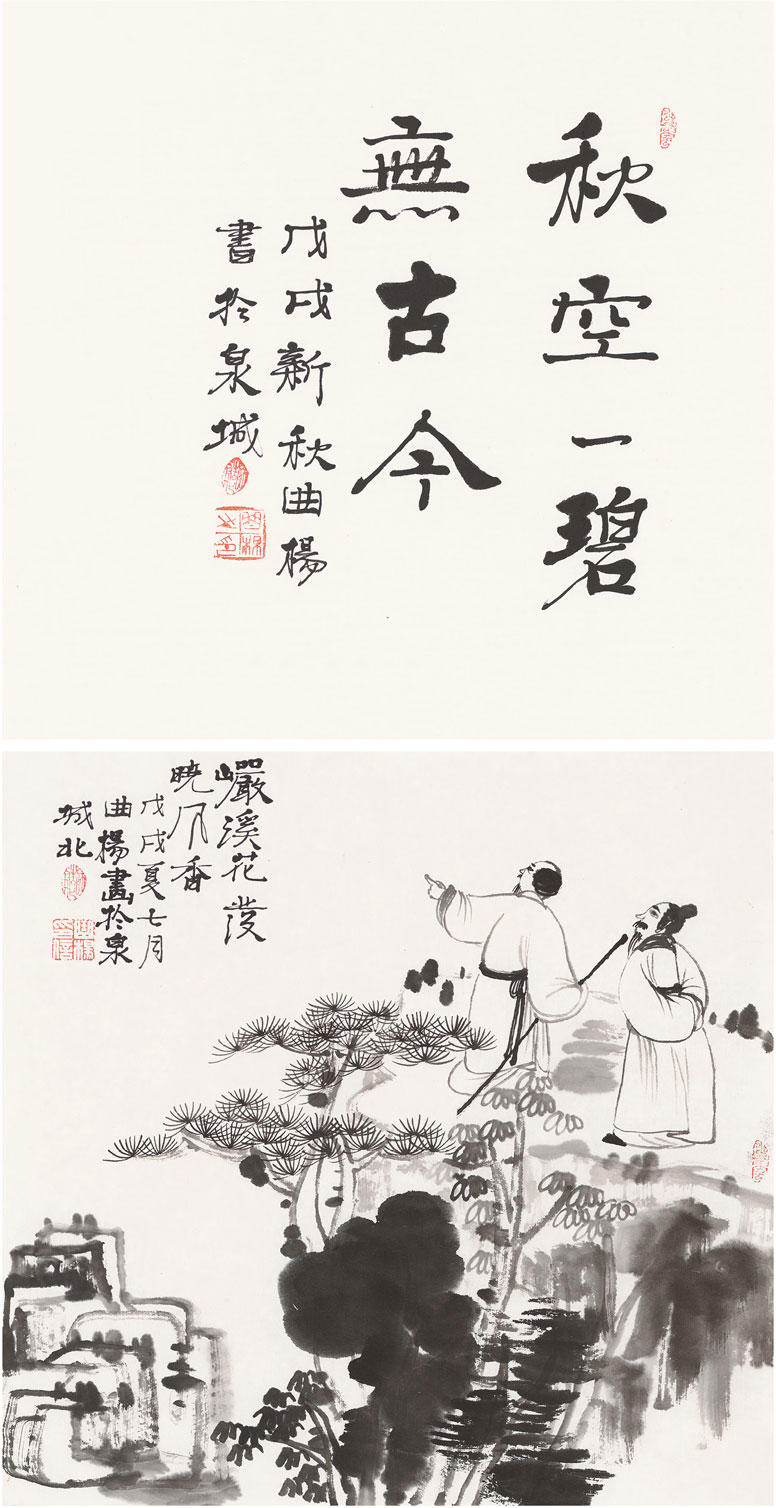 秋空一碧
無古今
戊戌新秋曲楊
書於泉城
巖溪花發
曉风香
戊戌夏七月
曲楊畫於泉
城北